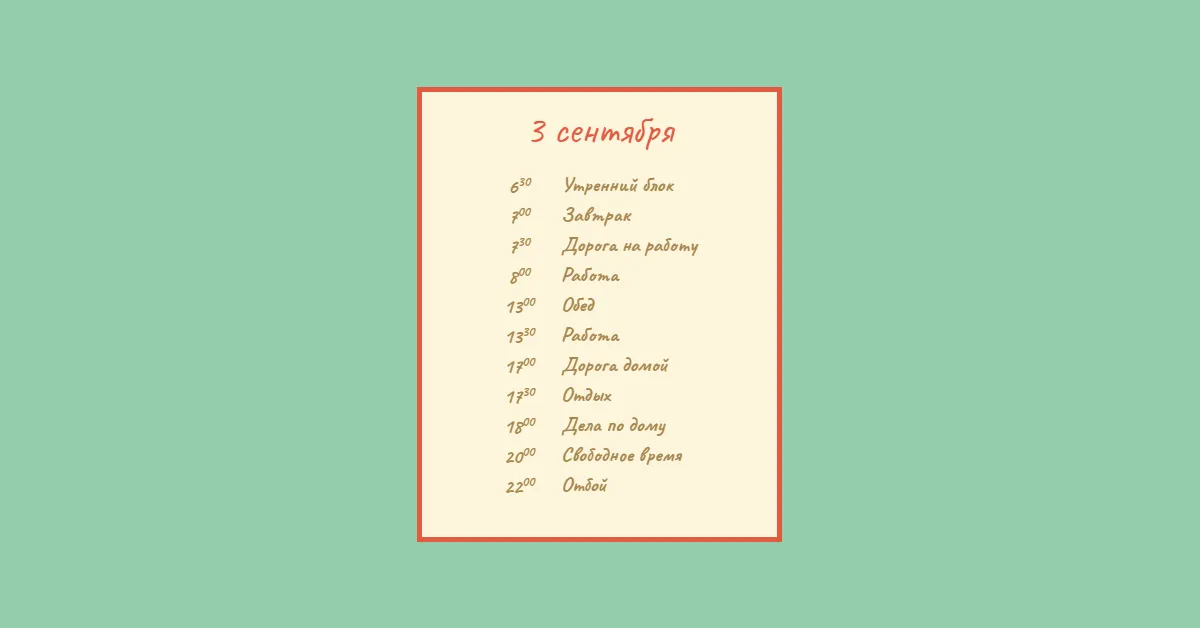 3 сентября
6³⁰ Утренний блок
7⁰⁰ Завтрак
7³⁰ Дорога на работу
8⁰⁰ Работа
13⁰⁰ Обед
13³⁰ Работа
17⁰⁰ Дорога домой
17³⁰ Отдых
18⁰⁰ Дела по дому
20⁰⁰ Свободное время
22⁰⁰ Отбой